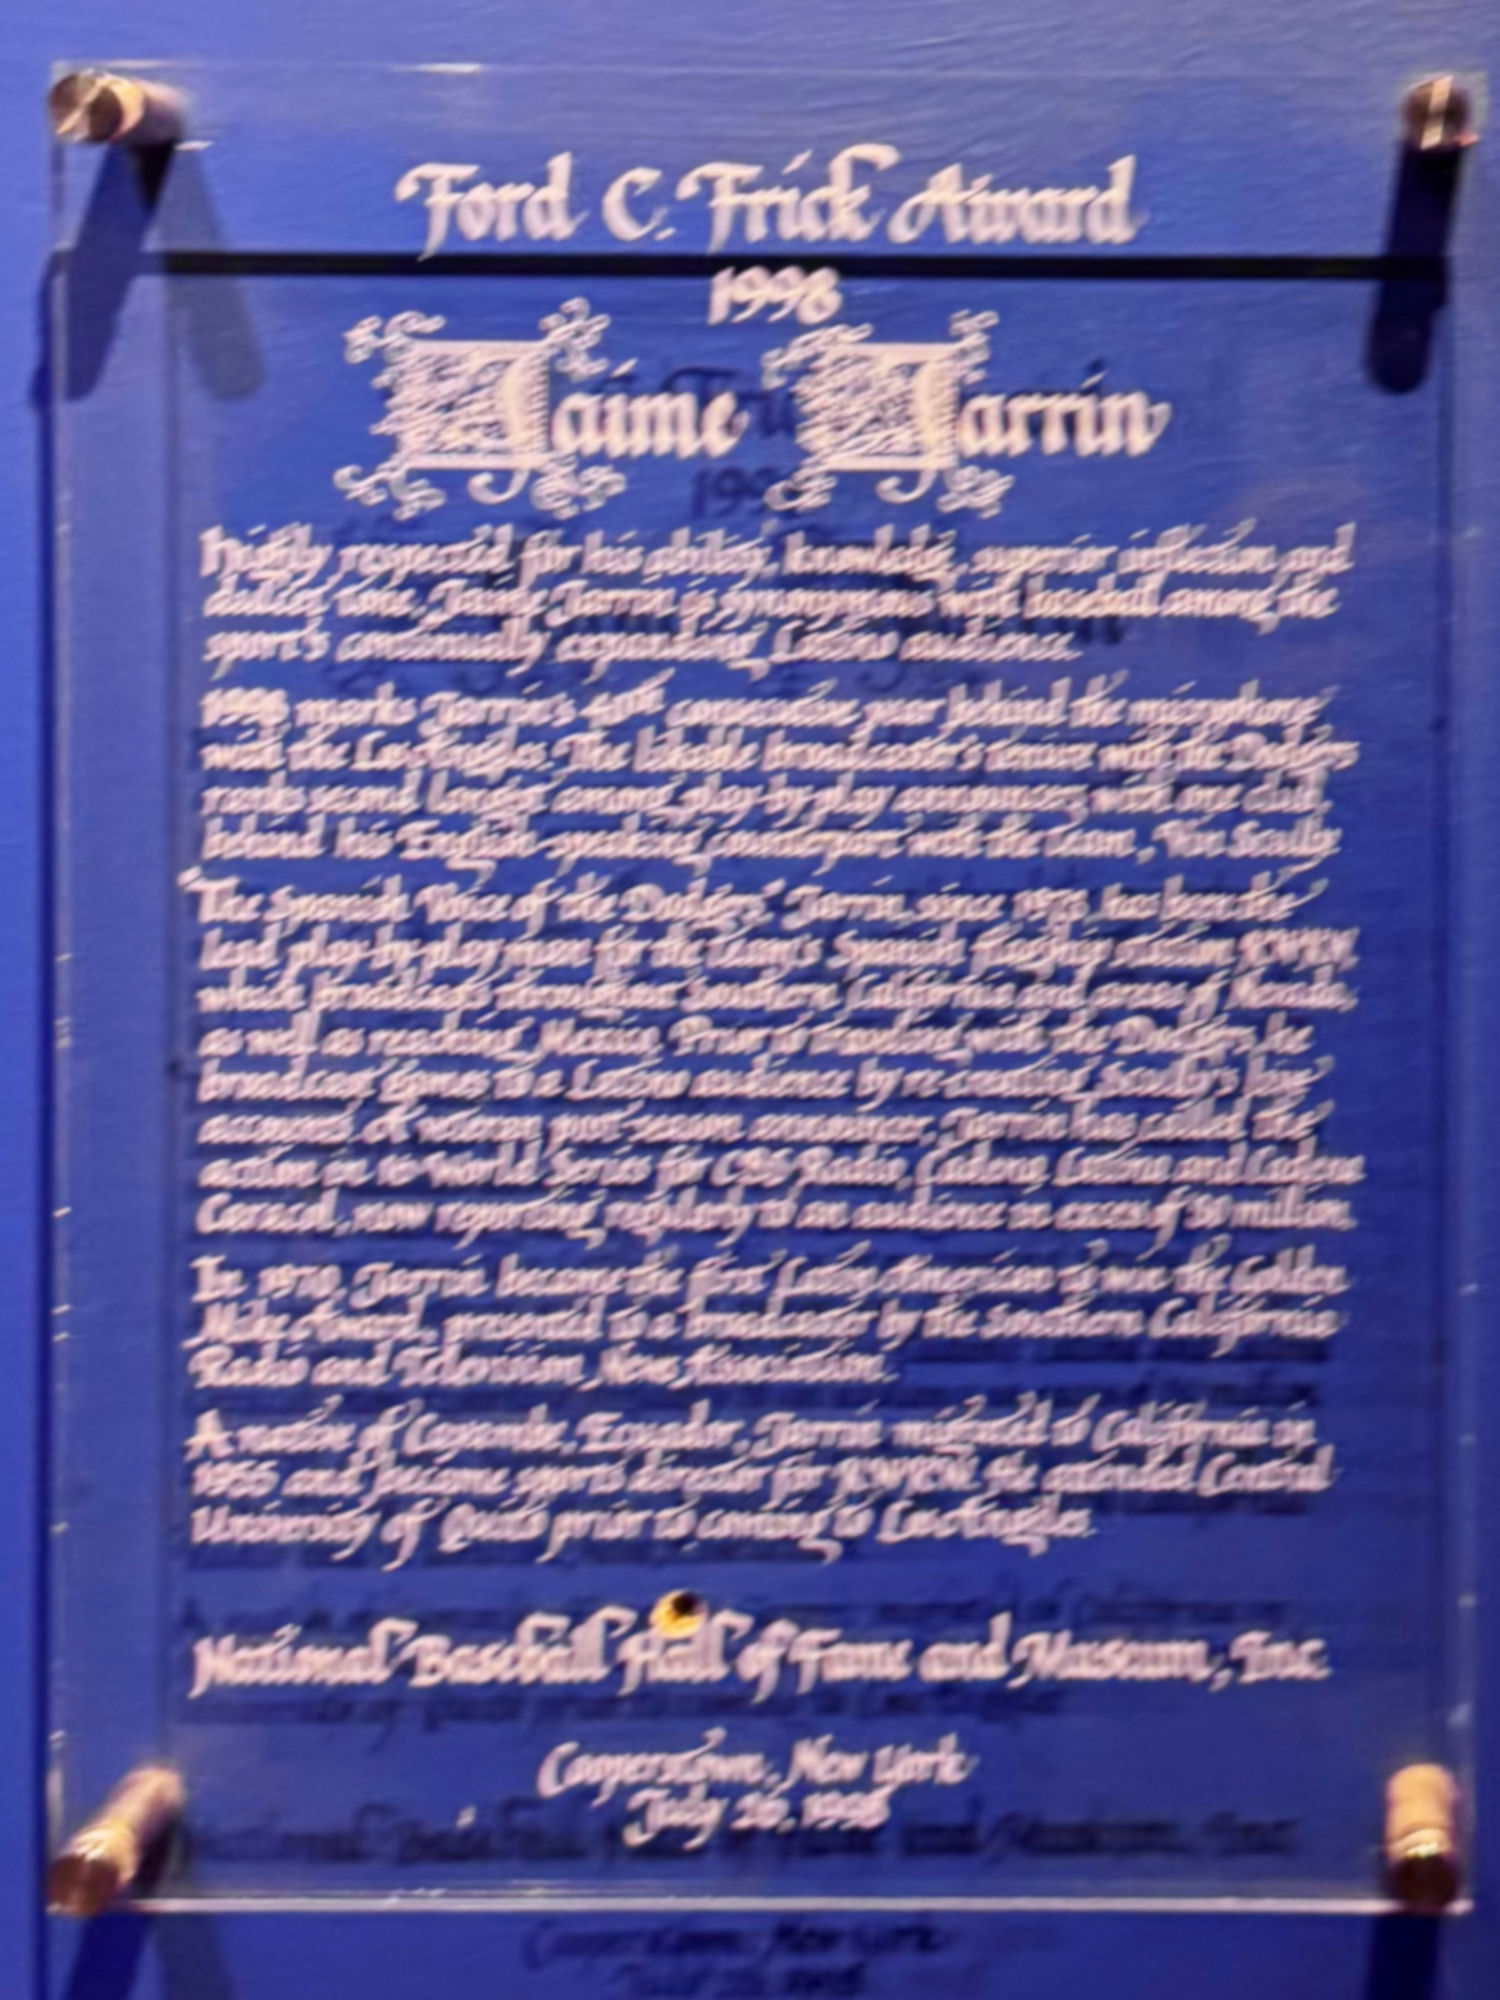 Ford C. Frick Award
1998
Jaime Jarrin
Highly respected for his ability, knowledge, superior inflection and
dialect tone, Jaime Jarrin is synonymous with baseball among the
sport's continually expanding Latino audience.
1998 marks Jarrin's 40th consecutive year behind the microphone
with the Los Angeles. The likable broadcaster's tenure with the Dodgers
ranks second longest among play-by-play announcers with one club,
behind his English-speaking counterpart with the team, Vin Scully.
"The Spanish Voice of the Dodgers," Jarrin, since 1973, has been the
lead play-by-play man for the team's Spanish flagship station KWKW,
which broadcasts throughout Southern California and areas of Nevada,
as well as reaching Mexico. Prior to traveling with the Dodgers, he
broadcast games to a Latino audience by re-creating Scully's live
accounts. A veteran post-season announcer, Jarrin has called the
action in 16 World Series for CBS Radio, Cadena Latina and Cadena
Caracol, now reporting regularly to an audience in excess of 30 million.
In 1970, Jarrin became the first Latin American to win the Golden
Mike Award, presented to a broadcaster by the Southern California
Radio and Television News Association.
A native of Cayambe, Ecuador, Jarrin migrated to California in
1955 and became sports director for KWKW. He attended Central
University of Quito prior to coming to Los Angeles.
National Baseball Hall of Fame and Museum, Inc.
Cooperstown, New York
July 26, 1998